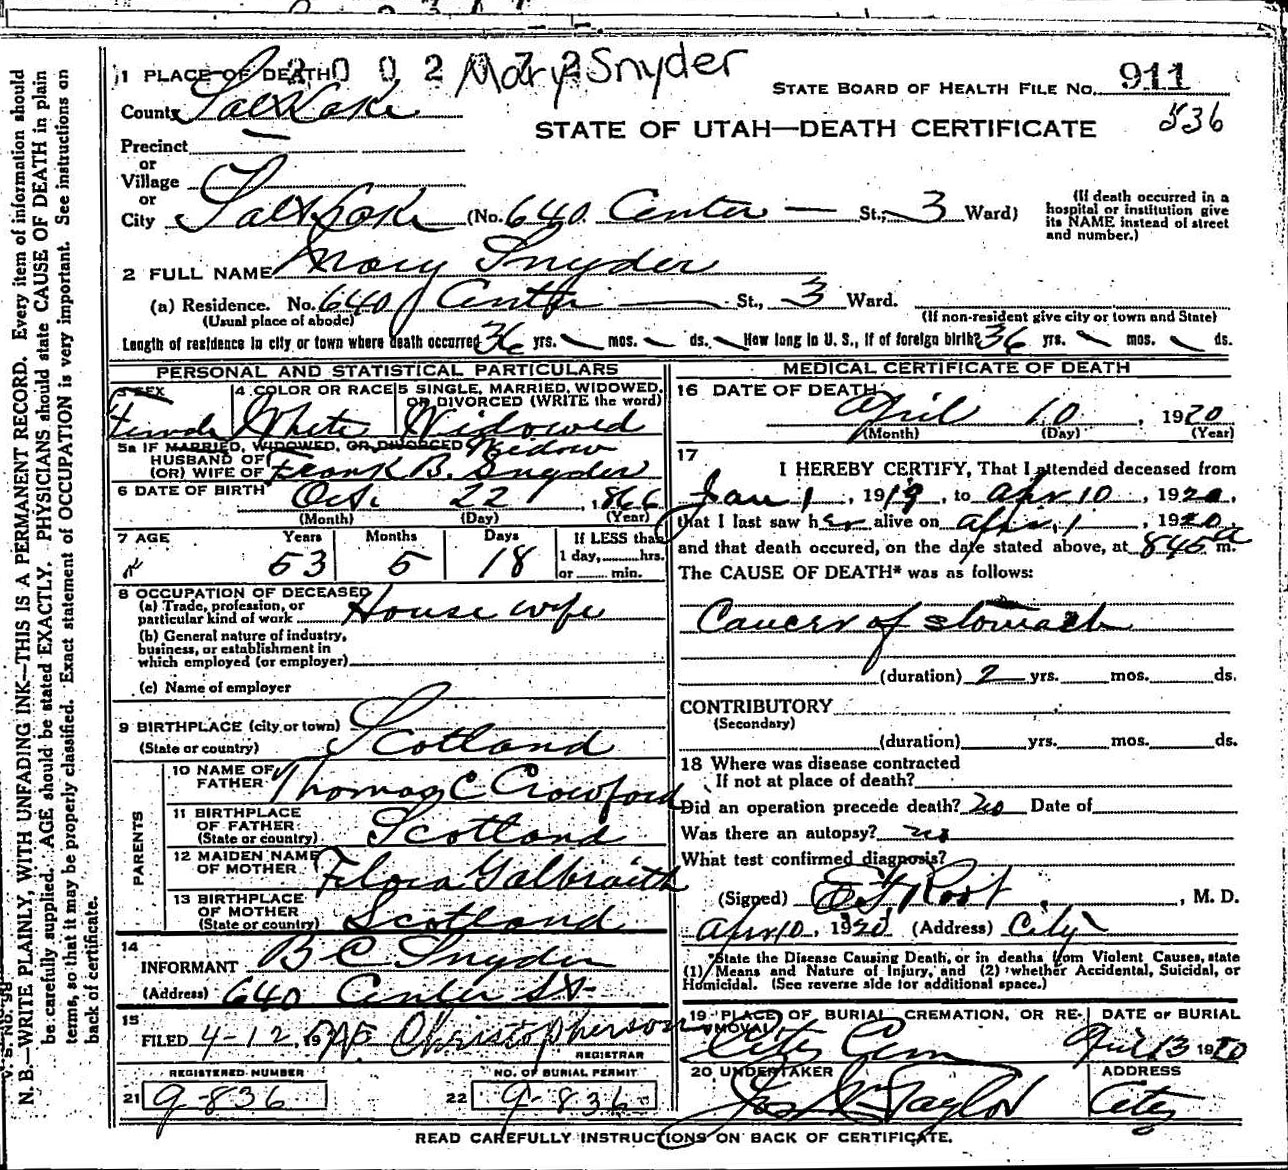 2 0 0 2 7 2 Mary Snyder
1 PLACE OF DEATH
STATE BOARD OF HEALTH FILE NO. 911
County Salt Lake
536
STATE OF UTAH—DEATH CERTIFICATE
Precinct —
or
Village
or
City Salt Lake (No. 640 Center — St., 3 Ward)
(If death occurred in a hospital or institution give its NAME instead of street and number.)
2 FULL NAME Mary Snyder
(a) Residence. No. 640 Center — St., 3 Ward.
(Usual place of abode)
(If non-resident give city or town and State)
Length of residence in city or town where death occurred 36 yrs. — mos. — ds. How long in U. S., if of foreign birth? 36 yrs. — mos. — ds.
PERSONAL AND STATISTICAL PARTICULARS
3 SEX Female
4 COLOR OR RACE White
5 SINGLE, MARRIED, WIDOWED, OR DIVORCED (WRITE the word) Widowed
5a IF MARRIED, WIDOWED, OR DIVORCED Widow
HUSBAND OF
(OR) WIFE OF Frank B. Snyder
6 DATE OF BIRTH Oct. 22, 1866
(Month) (Day) (Year)
7 AGE Years Months Days If LESS than
53 5 18 1 day,......hrs.
or ...... min.
8 OCCUPATION OF DECEASED
(a) Trade, profession, or
particular kind of work House wife
(b) General nature of industry,
business, or establishment in
which employed (or employer)
(c) Name of employer
9 BIRTHPLACE (city or town)
(State or country) Scotland
PARENTS
10 NAME OF
FATHER Thomas C Crawford
11 BIRTHPLACE
OF FATHER
(State or country) Scotland
12 MAIDEN NAME
OF MOTHER Flora Galbraith
13 BIRTHPLACE
OF MOTHER
(State or country) Scotland
14
INFORMANT B C Snyder
(Address) 640 Center St.
15
FILED 4-12, 19 Christopherson
REGISTRAR
REGISTERED NUMBER
21 9-836
NO. OF BURIAL PERMIT
22 9-836
MEDICAL CERTIFICATE OF DEATH
16 DATE OF DEATH
April 10, 1920
(Month) (Day) (Year)
17
I HEREBY CERTIFY, That I attended deceased from
Jan 1, 1919, to Apr 10, 1920,
that I last saw her alive on Apr. 1, 1920
and that death occured, on the date stated above, at 845 a m.
The CAUSE OF DEATH* was as follows:
Cancer of stomach
(duration) 2 yrs. mos. ds.
CONTRIBUTORY
(Secondary)
(duration) yrs. mos. ds.
18 Where was disease contracted
If not at place of death?
Did an operation precede death? no Date of
Was there an autopsy? no
What test confirmed diagnosis?
(Signed) Root, M. D.
Apr 10, 1920 (Address) City
*State the Disease Causing Death, or in deaths from Violent Causes, state
(1) Means and Nature of Injury, and (2) whether Accidental, Suicidal, or
Homicidal. (See reverse side for additional space.)
19 PLACE OF BURIAL, CREMATION, OR RE-
MOVAL City Cem
DATE OF BURIAL
April 13 1920
20 UNDERTAKER
Jos Taylor
ADDRESS
City
READ CAREFULLY INSTRUCTIONS ON BACK OF CERTIFICATE.
N. B.—WRITE PLAINLY, WITH UNFADING INK—THIS IS A PERMANENT RECORD. Every item of information should
be carefully supplied. AGE should be stated EXACTLY. PHYSICIANS should state CAUSE OF DEATH in plain
terms, so that it may be properly classified. Exact statement of OCCUPATION is very important. See instructions on
back of certificate.